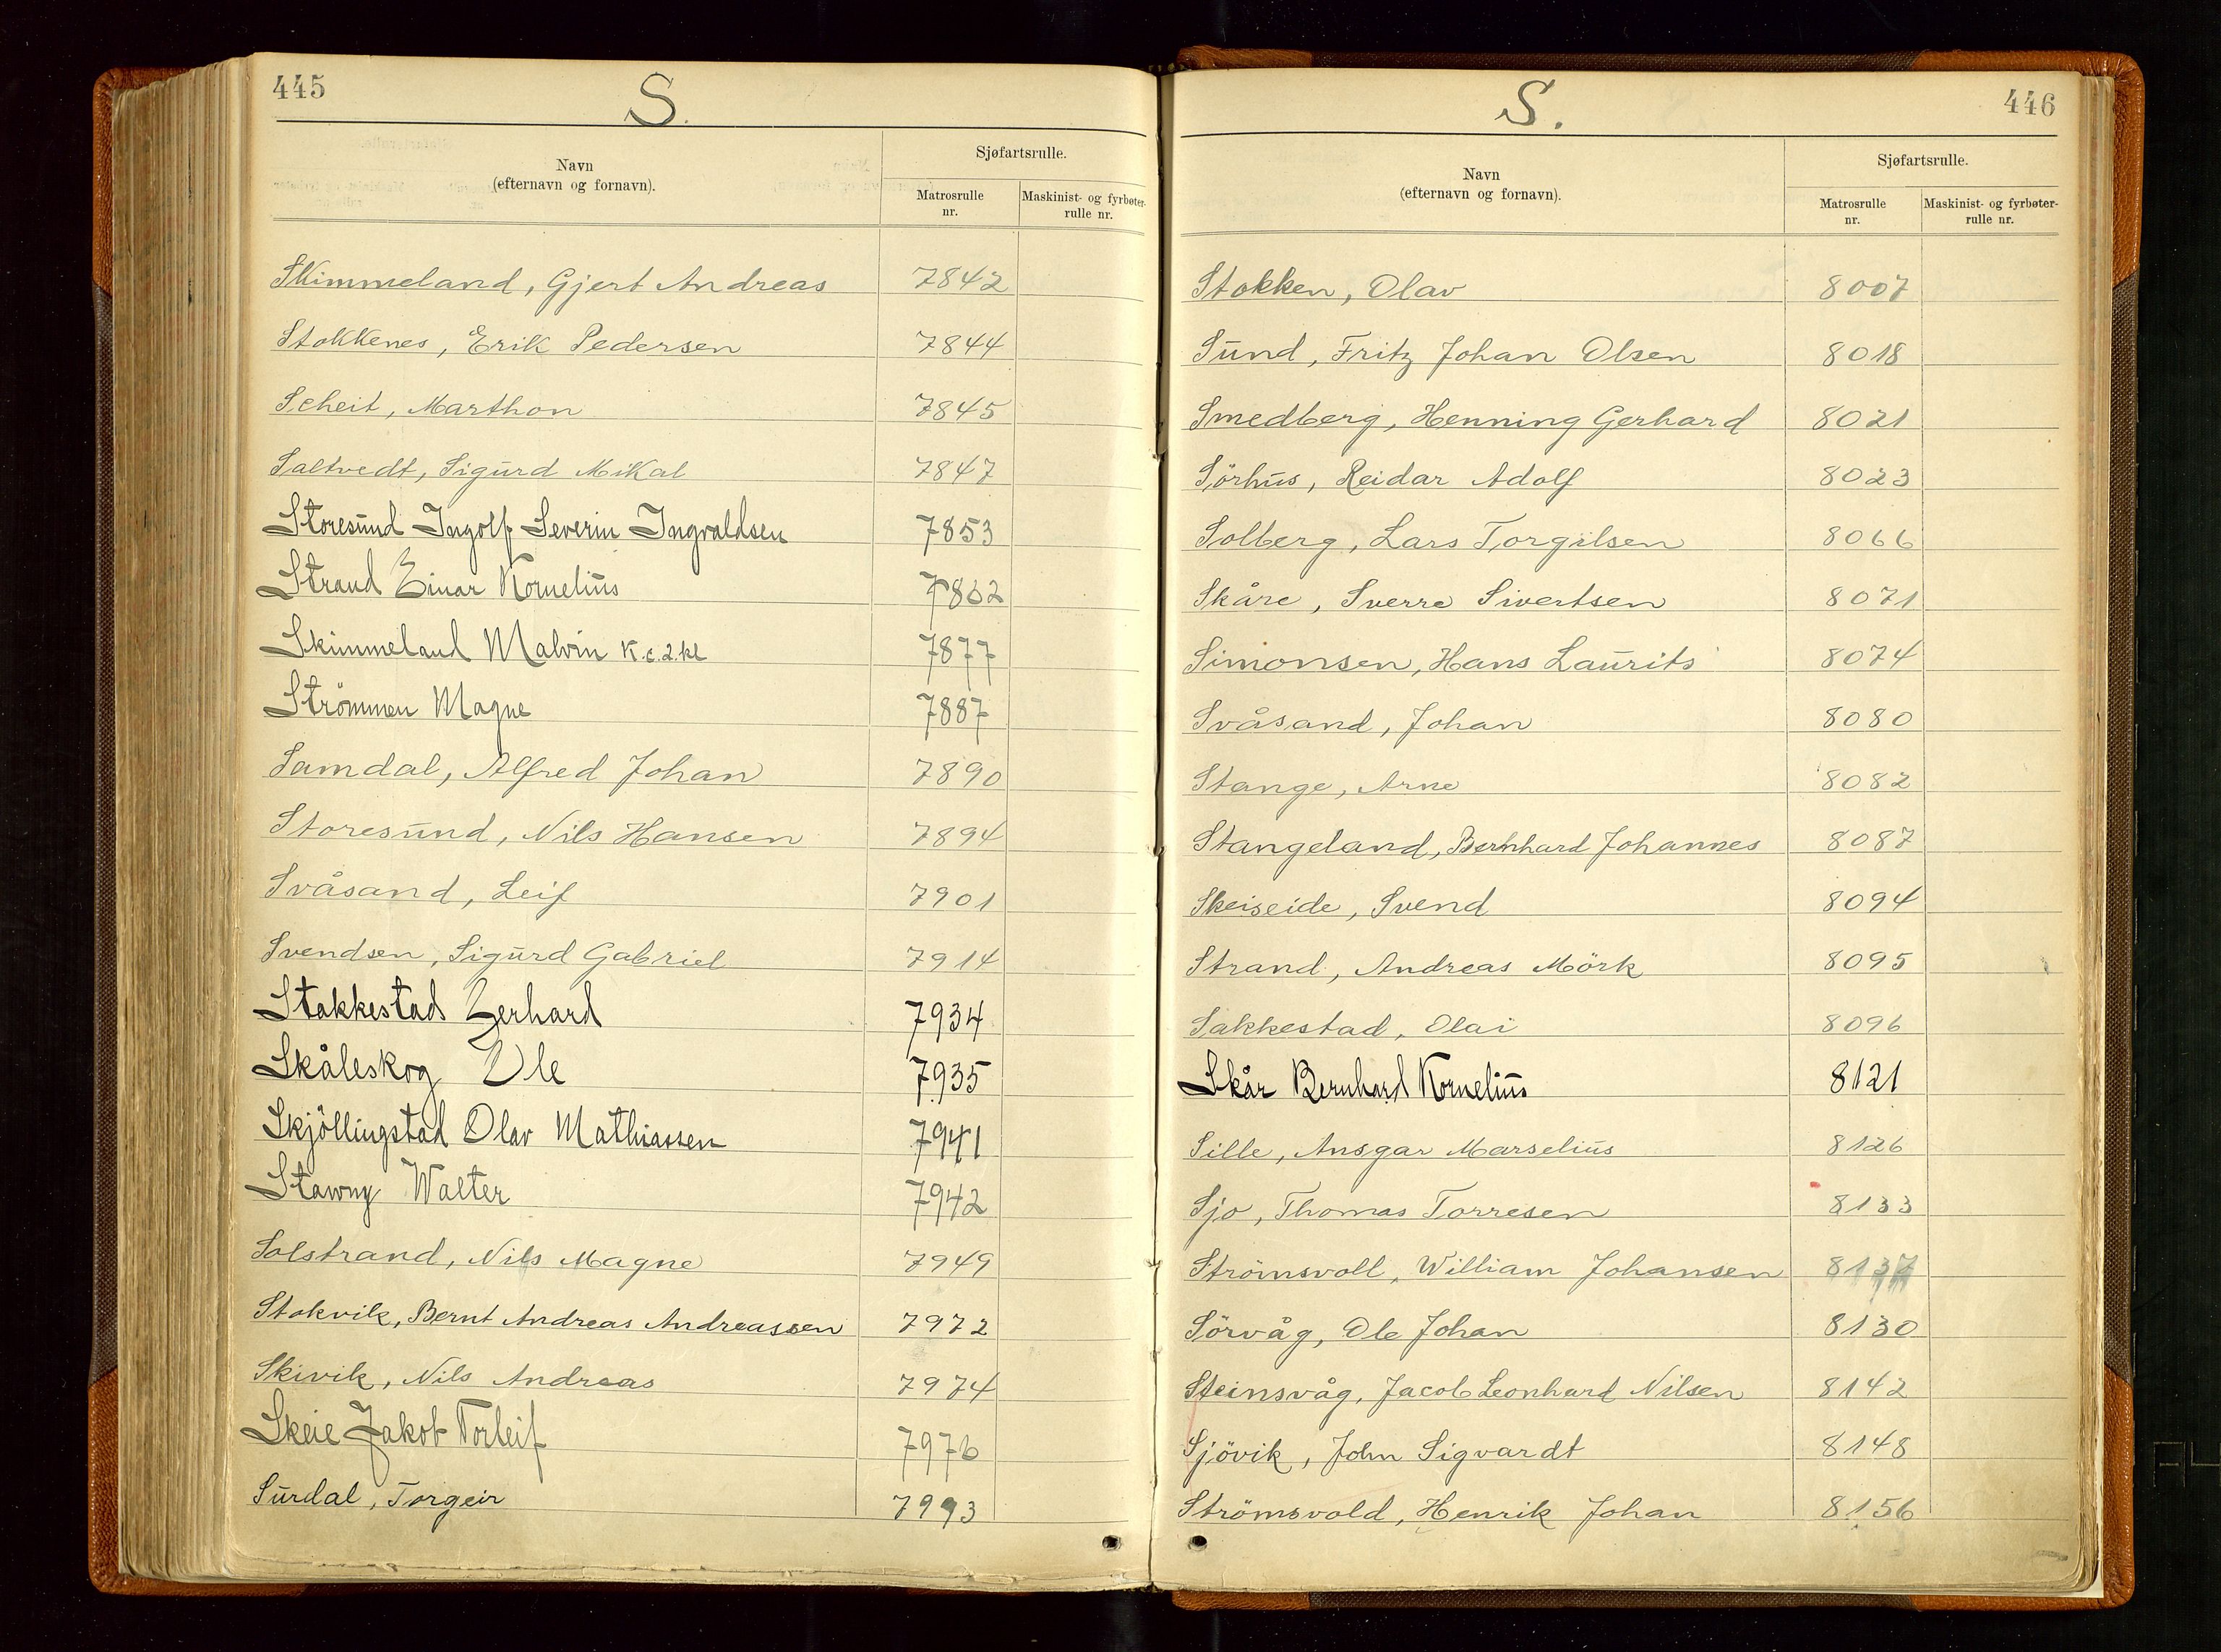 445
S.
Navn
(efternavn og fornavn).
Sjøfartsrulle.
Matrosrulle
nr.
Maskinist- og fyrbøter-
rulle nr.
Skimmeland, Gjert Andreas 7842
Stokkenes, Erik Pedersen 7844
Scheit, Marthon 7845
Saltvedt, Sigurd Mikal 7847
Storesund Ingolf Severin Ingvaldsen 7853
Strand Einar Kornelius 7862
Skimmeland Malvin K.c.2.kl 7877
Strömmen Magne 7887
Samdal, Alfred Johan 7890
Storesund, Nils Hansen 7894
Svåsand, Leif 7901
Svendsen, Sigurd Gabriel 7914
Stakkestad Gerhard 7934
Skåleskog Ole 7935
Skjöllingstad Olav Mathiassen 7941
Stawny Walter 7942
Solstrand, Nils Magne 7949
Stokvik, Bernt Andreas Andreassen 7972
Skivik, Nils Andreas 7974
Skeie Jakob Torleif 7976
Surdal, Torgeir 7993
446
S.
Navn
(efternavn og fornavn).
Sjøfartsrulle.
Matrosrulle
nr.
Maskinist- og fyrbøter-
rulle nr.
Stokken, Olav 8007
Sund, Fritz Johan Olsen 8018
Smedberg, Henning Gerhard 8021
Sörhus, Reidar Adolf 8023
Solberg, Lars Torgilsen 8066
Skåre, Sverre Sivertsen 8071
Simonsen, Hans Laurits 8074
Svåsand, Johan 8080
Stange, Arne 8082
Stangeland, Bernhard Johannes 8087
Skeiseide, Svend 8094
Strand, Andreas Mörk 8095
Sakkestad, Olai 8096
Skår Bernhard Kornelius 8121
Sille, Ansgar Marselius 8126
Sjo, Thomas Torresen 8133
Strömsvoll, William Johansen 8137
Sörvåg, Ole Johan 8130
Steinsvåg, Jacob Leonhard Nilsen 8142
Sjövik, John Sigvardt 8148
Strömsvold, Henrik Johan 8156